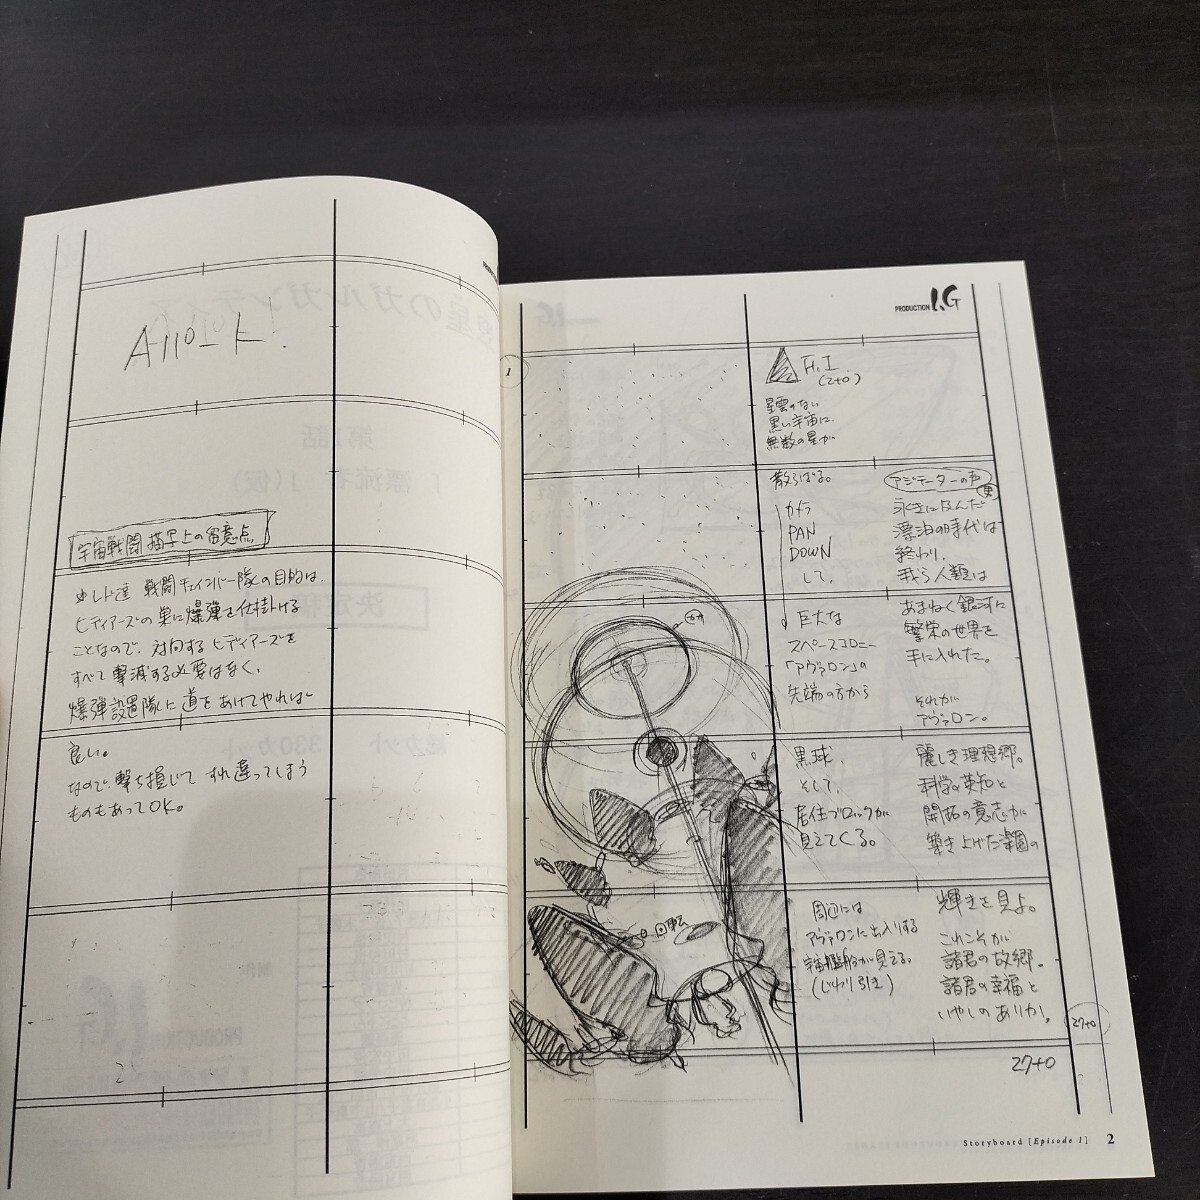 Aパート!
宇宙戦闘描写上の留意点
レド達 戦闘チェインバー隊の目的は、
ヒディアーズの巣に爆弾を仕掛ける
ことなので、対向するヒディアーズを
すべて撃滅する必要はなく、
爆弾設置隊に道をあけてやれば
良い。
なので、撃ち損じて すれ違ってしまう
ものもあってOK。
PRODUCTION I.G
1
F.I
(2+0)
星雲のない
黒い宇宙に
無数の星が
散らばる。
カメラ
PAN
DOWN
して、
巨大な
スペースコロニー
「アヴァロン」の
先端の方から
黒球、
そして、
居住ブロックが
見えてくる。
周辺には
アヴァロンに出入りする
宇宙艦船が見える。
(じわり引き)
アジテーターの声
永きに及んだ
漂泊の時代は
終わり、
我ら人類は
あまねく銀河に
繁栄の世界を
手に入れた。
それが
アヴァロン。
麗しき理想郷。
科学の英知と
開拓の意志が
築き上げた楽園の
輝きを見よ。
これこそが
諸君の故郷。
諸君の幸福と
いやしのありか。
回転
27+0
27+0
Storyboard [Episode 1] 2